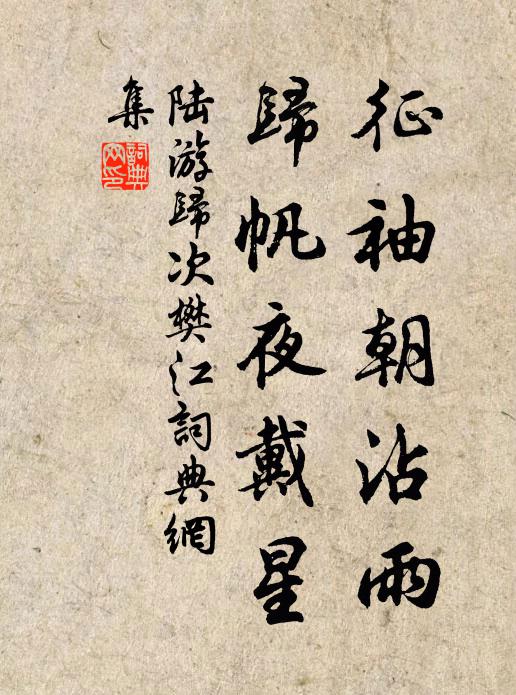 征袖朝沾雨
歸帆夜戴星
陆游歸次樊江詞典網
集
詞典網印